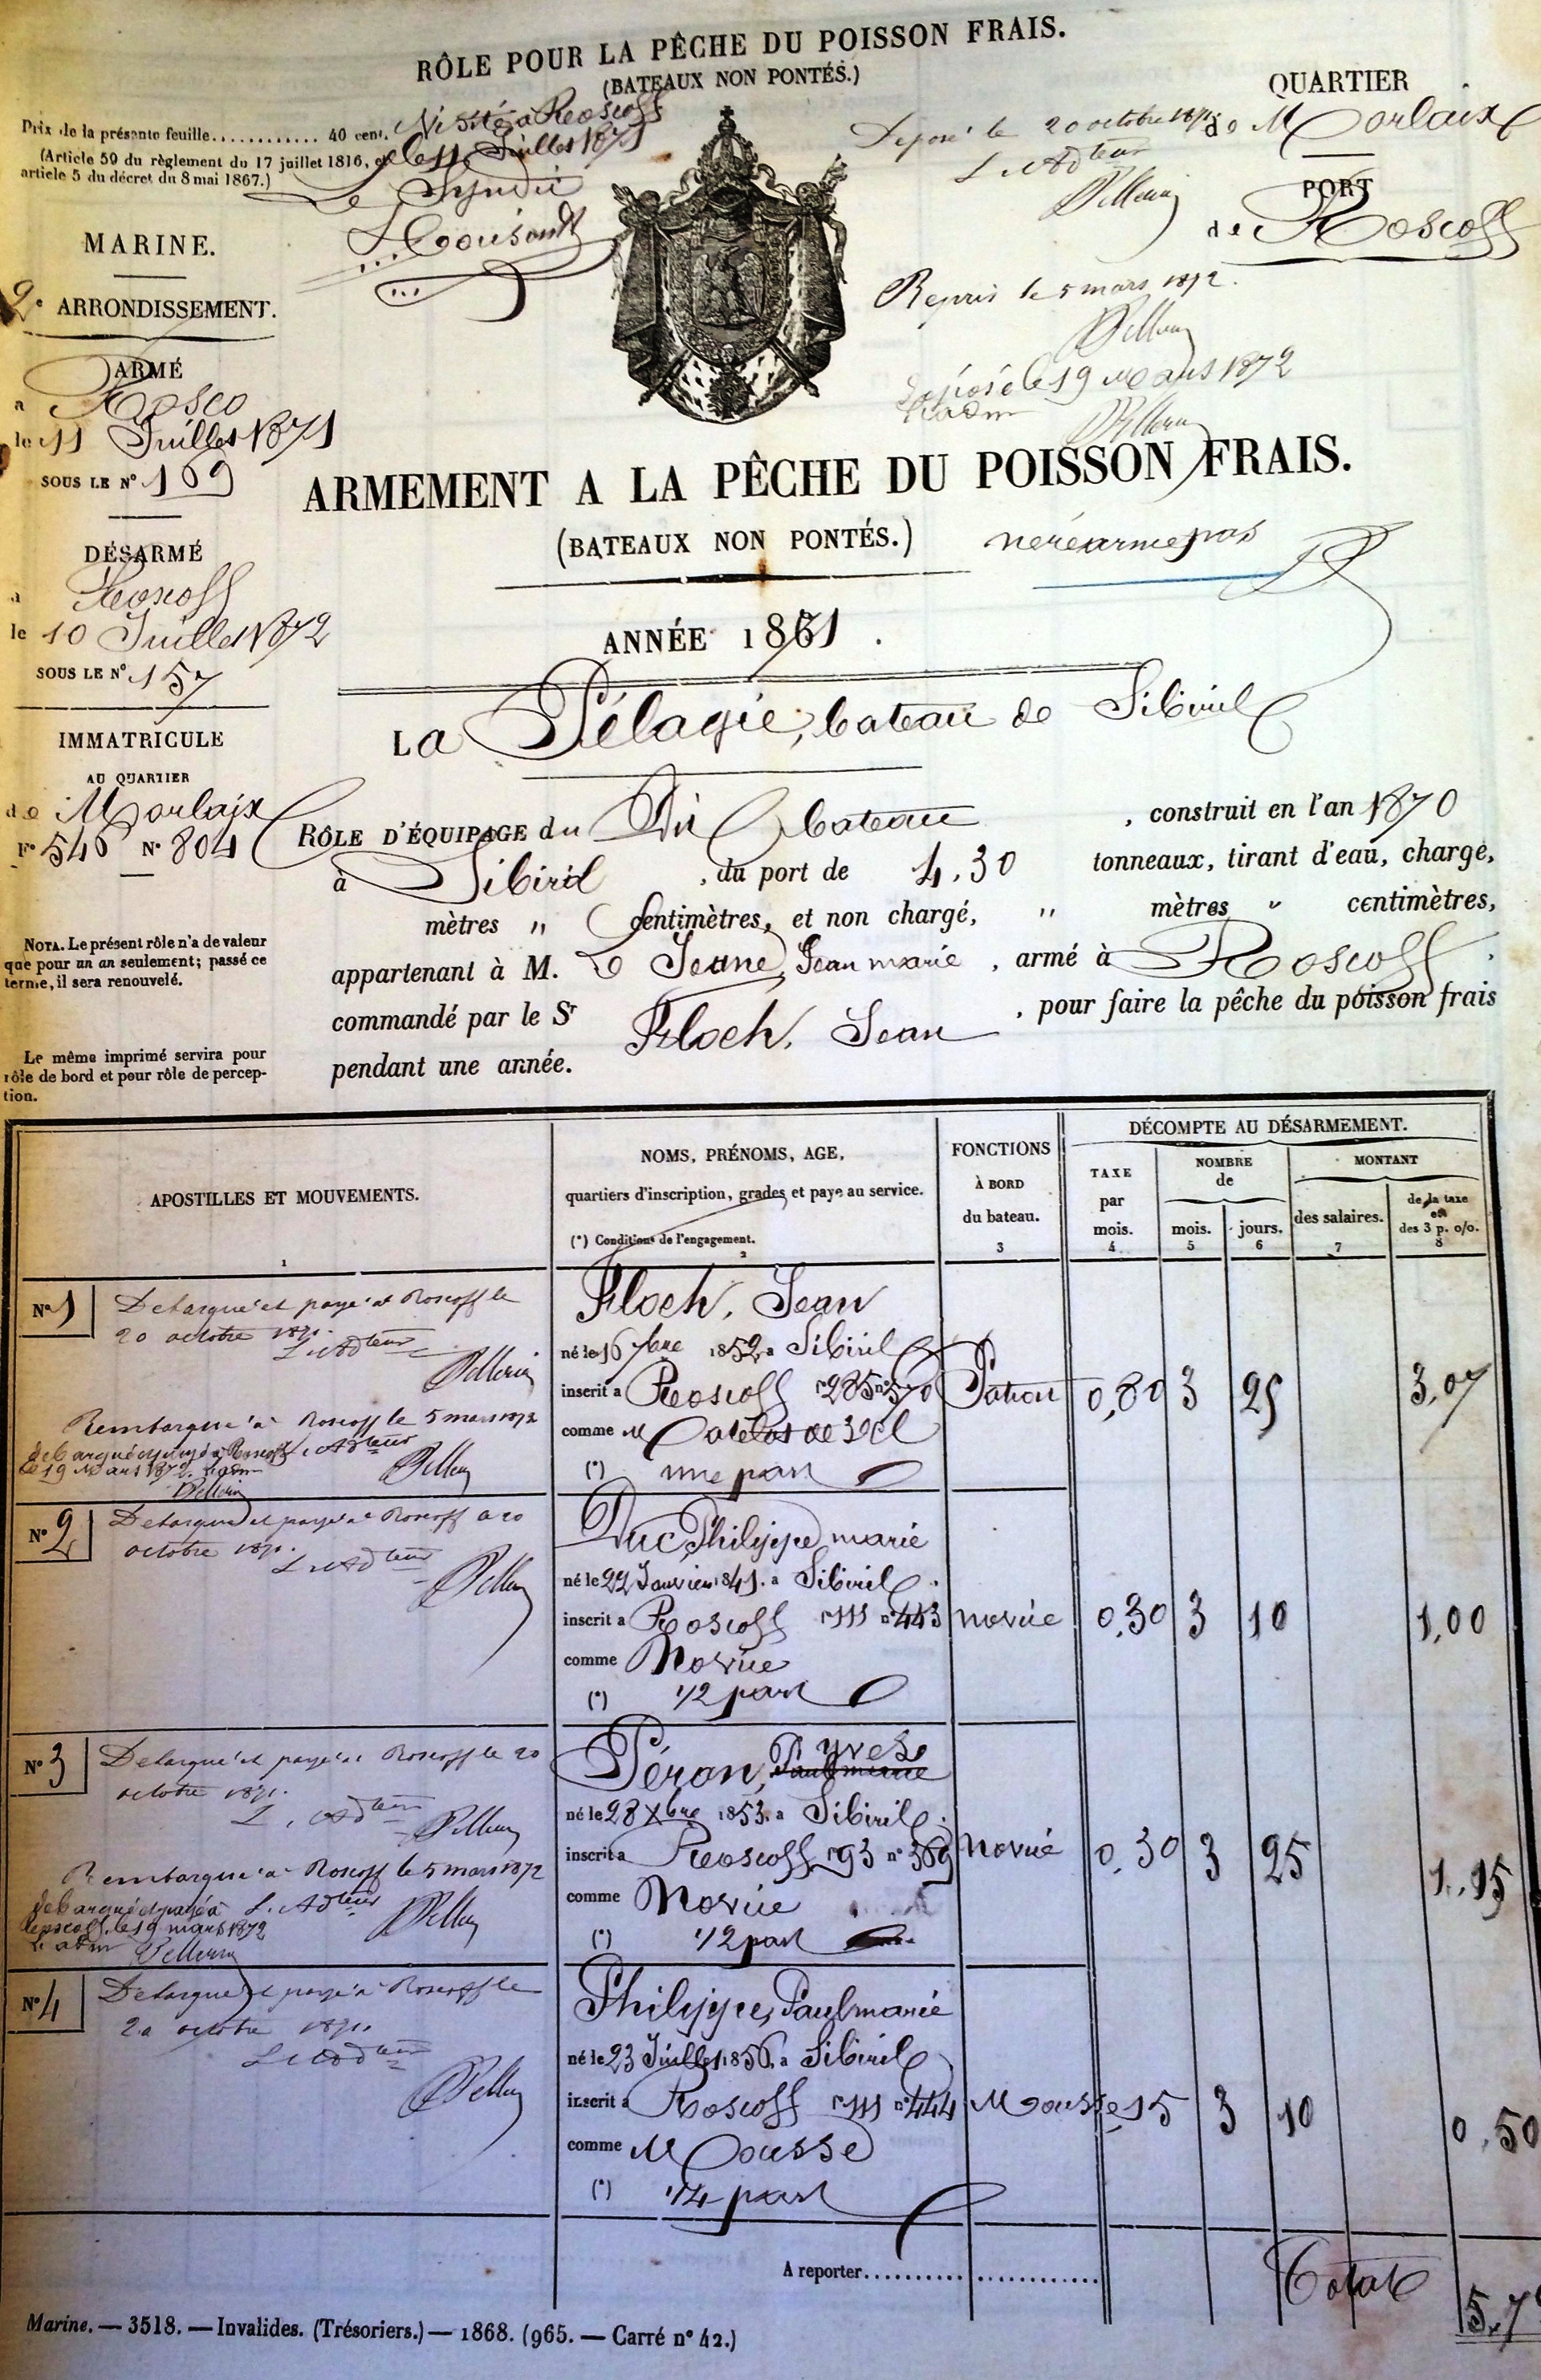 RÔLE POUR LA PÊCHE DU POISSON FRAIS.
(BATEAUX NON PONTÉS.)
Prix de la présente feuille............ 40 cent.
(Article 59 du règlement du 17 juillet 1816, et
article 5 du décret du 8 mai 1867.)
Visité à Roscoff
le 11 Juillet 1871
Le Syndic
Déposé le 20 octobre 1871
L. Adteur
Pellerin
QUARTIER
de Morlaix
PORT
de Roscoff
MARINE.
2e ARRONDISSEMENT.
ARMÉ
a Rosco
le 11 Juillet 1871
SOUS LE N° 169
Repris le 5 mars 1872.
Pellerin
Déposé le 19 Mars 1872
L'adm
Pellerin
ARMEMENT A LA PÊCHE DU POISSON FRAIS.
(BATEAUX NON PONTÉS.)
ne réarme pas
DÉSARMÉ
a Roscoff
le 10 Juillet 1872
SOUS LE N° 157
ANNÉE 1871.
La Pélagie, bateau de Sibiril
IMMATRICULE
AU QUARTIER
de Morlaix
F° 546 N° 804
RÔLE D'ÉQUIPAGE du Dit bateau , construit en l'an 1870
à Sibiril , du port de 4,30 tonneaux, tirant d'eau, chargé,
mètres " centimètres, et non chargé, " mètres " centimètres,
appartenant à M. Le Jeune, Jean marie , armé à Roscoff .
commandé par le Sr Floch, Jean , pour faire la pêche du poisson frais
pendant une année.
NOTA. Le présent rôle n'a de valeur
que pour un an seulement; passé ce
terme, il sera renouvelé.
Le même imprimé servira pour
rôle de bord et pour rôle de percep-
tion.
APOSTILLES ET MOUVEMENTS.
1
NOMS, PRÉNOMS, AGE,
quartiers d'inscription, grades et paye au service.
(*) Conditions de l'engagement.
2
FONCTIONS
À BORD
du bateau.
3
DÉCOMPTE AU DÉSARMEMENT.
TAXE
par
mois.
4
NOMBRE
de
mois.
5
jours.
6
MONTANT
des salaires.
7
de la taxe
et
des 3 p. o/o.
8
N° 1
Debarqué et payé à Roscoff le
20 octobre 1871.
L. Adteur
Pellerin
Rembarqué à Roscoff le 5 mars 1872
L. Adteur
Pellerin
debarqué et payé à Roscoff
le 19 Mars 1872. L'adm
Pellerin
Floch, Jean
né le 16 7bre 1852 a Sibiril
inscrit a Roscoff f° 285 n° 570
comme Matelot de 3e cl
(*) une part
Patron 0,80 3 25 3,07
N° 2
Debarqué et payé à Roscoff le 20
octobre 1871.
L. Adteur
Pellerin
Duc, Philippe marie
né le 22 Janvier 1841. a Sibiril
inscrit a Roscoff f° 111 n° 443
comme Novice
(*) 1/2 part
novice 0,30 3 10 1,00
N° 3
Debarqué et payé à Roscoff le 20
octobre 1871.
L. Adteur
Pellerin
Rembarqué à Roscoff le 5 mars 1872
L. Adteur
Pellerin
debarqué et payé à
Roscoff, le 19 mars 1872
L'adm Pellerin
Péron, Yves
né le 28 Xbre 1853. a Sibiril
inscrit a Roscoff f° 93 n° 369
comme Novice
(*) 1/2 part
Novice 0,30 3 25 1,15
N° 4
Debarqué et payé à Roscoff le
20 octobre 1871.
L. Adteur
Pellerin
Philippe, Paul marie
né le 23 Juillet 1856. a Sibiril
inscrit a Roscoff f° 111 n° 444
comme Mousse
(*) 1/4 part
Mousse 15 3 10 0,50
A reporter.........................
Total 5,7
Marine. — 3518. — Invalides. (Trésoriers.) — 1868. (965. — Carré n° 42.)